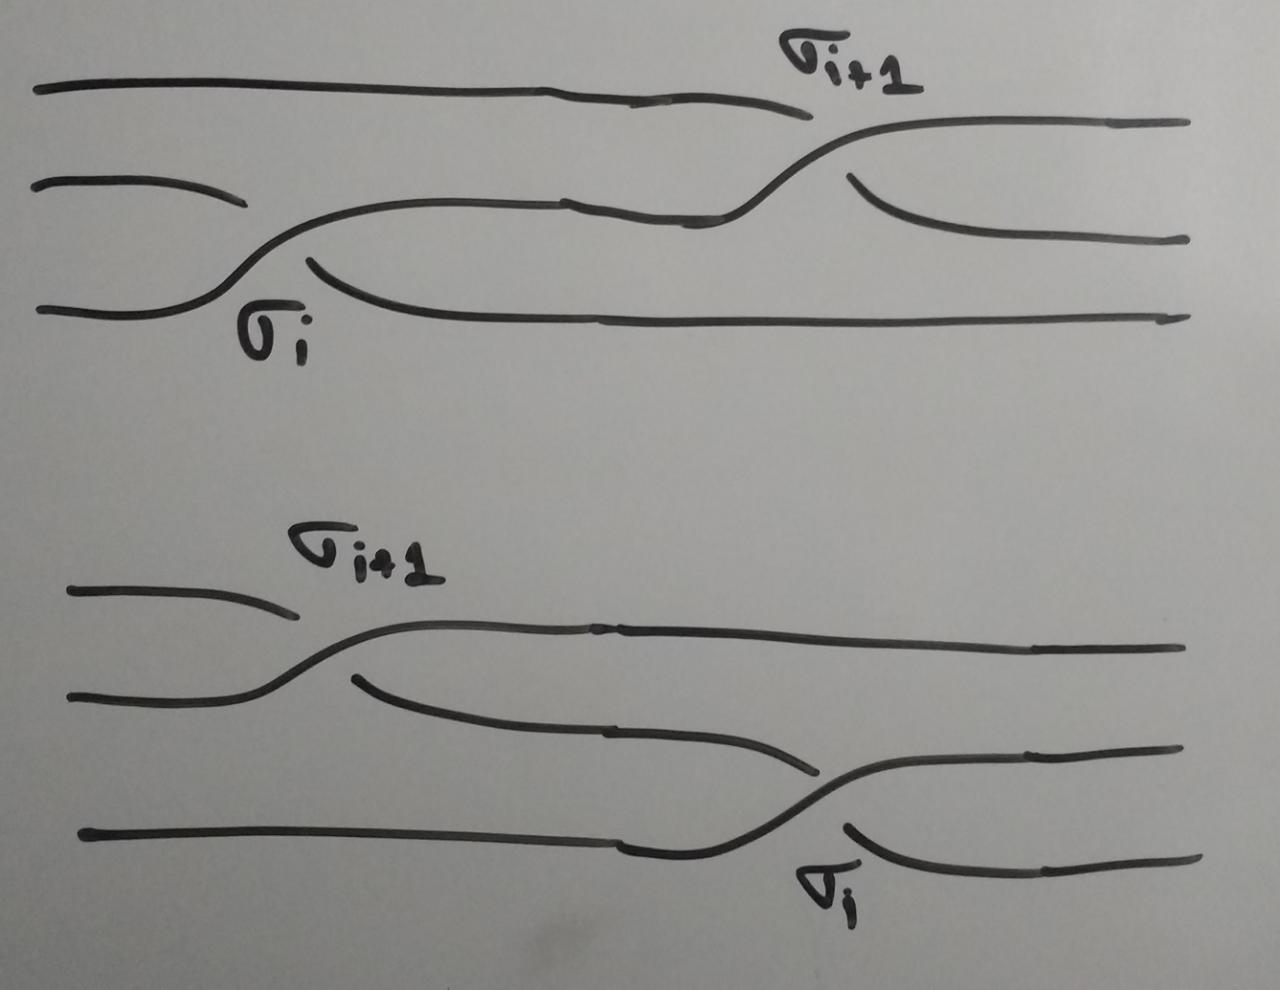 σi+1
σi
σi+1
σi